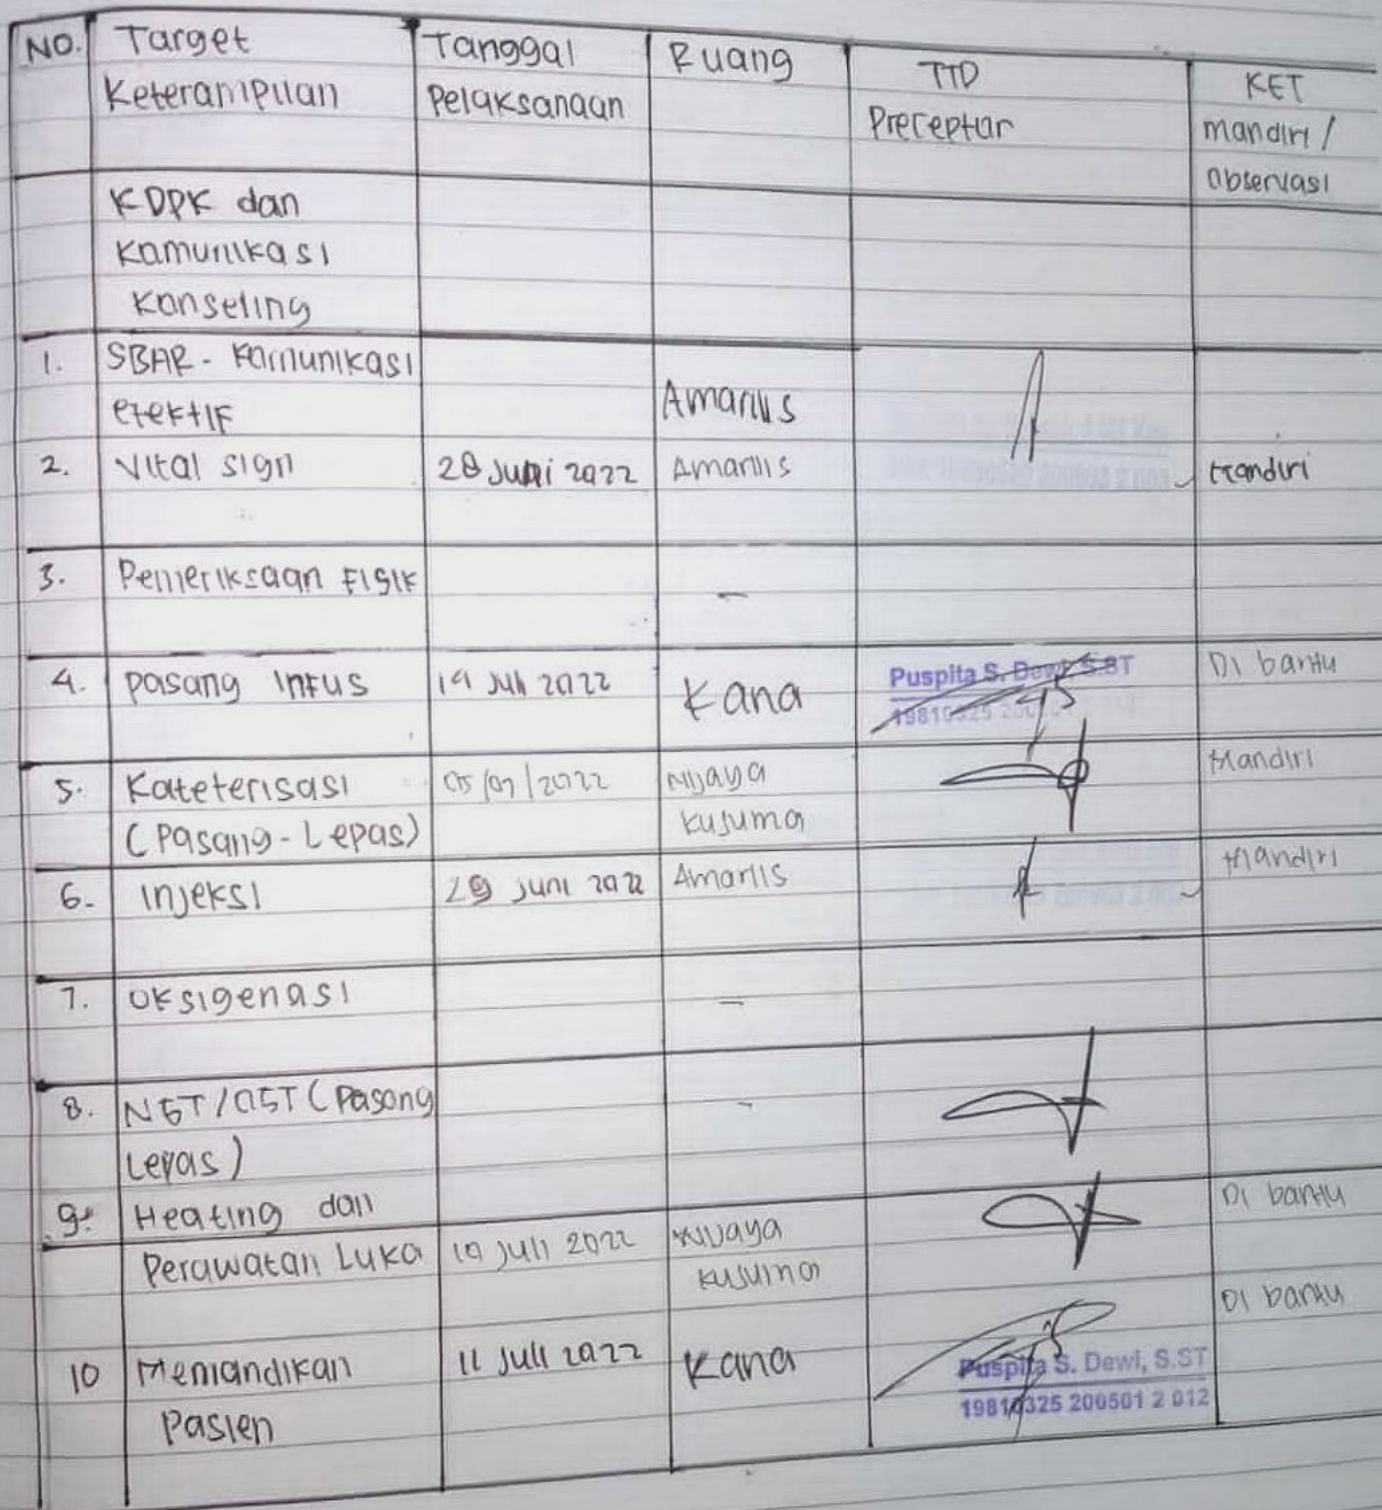 NO. Target Keterampilan Tanggal Pelaksanaan Ruang TTD Preceptor KET mandiri / observasi
KDPK dan
Komunikasi
Konseling
1. SBAR - Komunikasi
efektif Amarilis
2. Vital sign 28 Juni 2022 Amarilis Mandiri
3. Pemeriksaan Fisik -
4. Pasang Infus 19 Juli 2022 Kana Puspita S. Dewi, S.ST Di bantu
5. Kateterisasi 05/07/2022 Wijaya Mandiri
(Pasang - Lepas) Kusuma
6. Injeksi 29 Juni 2022 Amarilis Mandiri
7. Oksigenasi -
8. NGT/OGT (Pasang -
Lepas)
9. Heating dan Di bantu
Perawatan Luka 10 Juli 2022 Wijaya
Kusuma
Di bantu
10 Memandikan 11 Juli 2022 Kana Puspita S. Dewi, S.ST
Pasien 19810325 200501 2 012